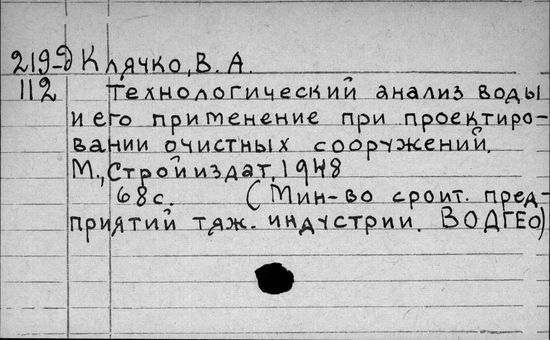 219-д Клячко, В. А.
112 Технологический анализ воды
и его применение при проектиро-
вании очистных сооружений.
М., Стройиздат, 1948
68 с. (Мин-во сроит. пред-
приятий тяж. индустрии. ВОДГЕО)